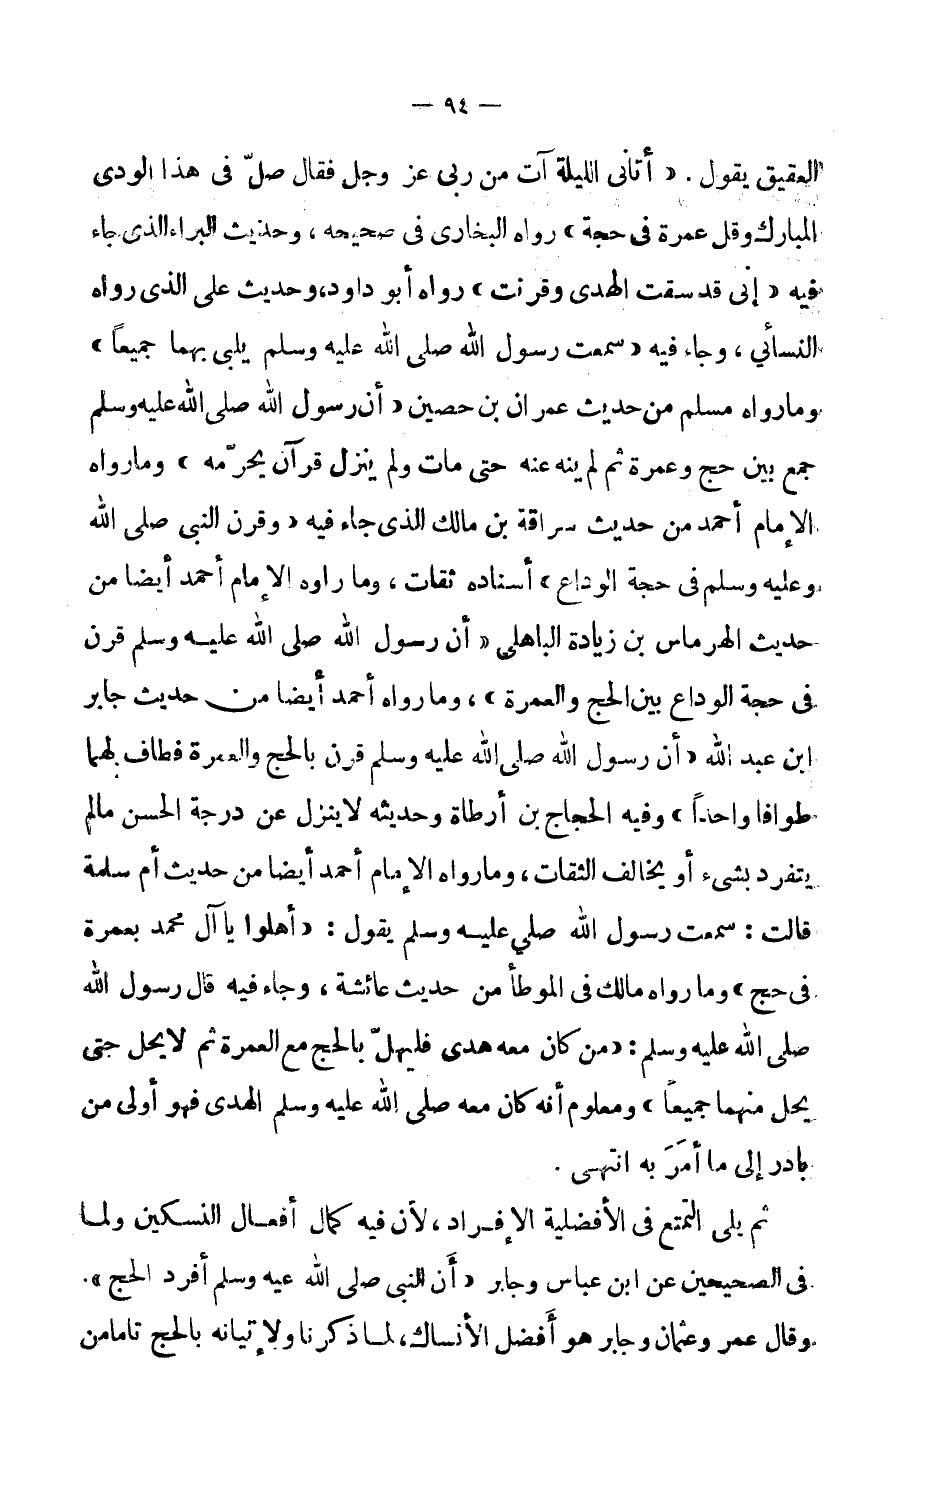 — ٩٤ —
العقيق يقول . « أتانى الليلة آت من ربى عز وجل فقال صلّ فى هذا الودى
المبارك وقل عمرة فى حجة » رواه البخارى فى صحيحه ، وحديث البراء الذى جاء
فيه « إنى قد سقت الهدى وقرنت » رواه أبو داود، وحديث على الذى رواه
النسائي ، وجاء فيه « سمعت رسول الله صلى الله عليه وسلم يلبى بهما جميعاً »
وما رواه مسلم من حديث عمران بن حصين « أن رسول الله صلى الله عليه وسلم
جمع بين حج وعمرة ثم لم ينه عنه حتى مات ولم ينزل قرآن يحرّمه » وما رواه
الإمام أحمد من حديث سراقة بن مالك الذى جاء فيه « وقرن النبي صلى الله
وعليه وسلم فى حجة الوداع » أسناده ثقات ، وما راوه الإمام أحمد أيضا من
حديث الهرماس بن زيادة الباهلي « أن رسول الله صلى الله عليه وسلم قرن
فى حجة الوداع بين الحج والعمرة » ، وما رواه أحمد أيضا من حديث جابر
ابن عبد الله « أن رسول الله صلى الله عليه وسلم قرن بالحج والعمرة فطاف لهما
طوافا واحداً » وفيه الحجاج بن أرطاة وحديثه لا ينزل عن درجة الحسن مالم
يتفرد بشىء أو يخالف الثقات ، وما رواه الإمام أحمد أيضا من حديث أم سلمة
قالت : سمعت رسول الله صلي عليه وسلم يقول : « أهلوا يا آل محمد بعمرة
فى حج » وما رواه مالك فى الموطأ من حديث عائشة ، وجاء فيه قال رسول الله
صلى الله عليه وسلم : « من كان معه هدى فليهلّ بالحج مع العمرة ثم لا يحل حتى
يحل منهما جميعاً » ومعلوم أنه كان معه صلى الله عليه وسلم الهدى فهو أولى من
بادر إلى ما أمَرَ به انتهى .
ثم يلى التمتع فى الأفضلية الإفراد ، لأن فيه كمال أفعال النسكين ولما
فى الصحيحين عن ابن عباس وجابر « أَن النبي صلى الله عيه وسلم أفرد الحج ».
وقال عمر وعثمان وجابر هو أَفضل الأنساك، لما ذكرنا ولإتيانه بالحج تاما من